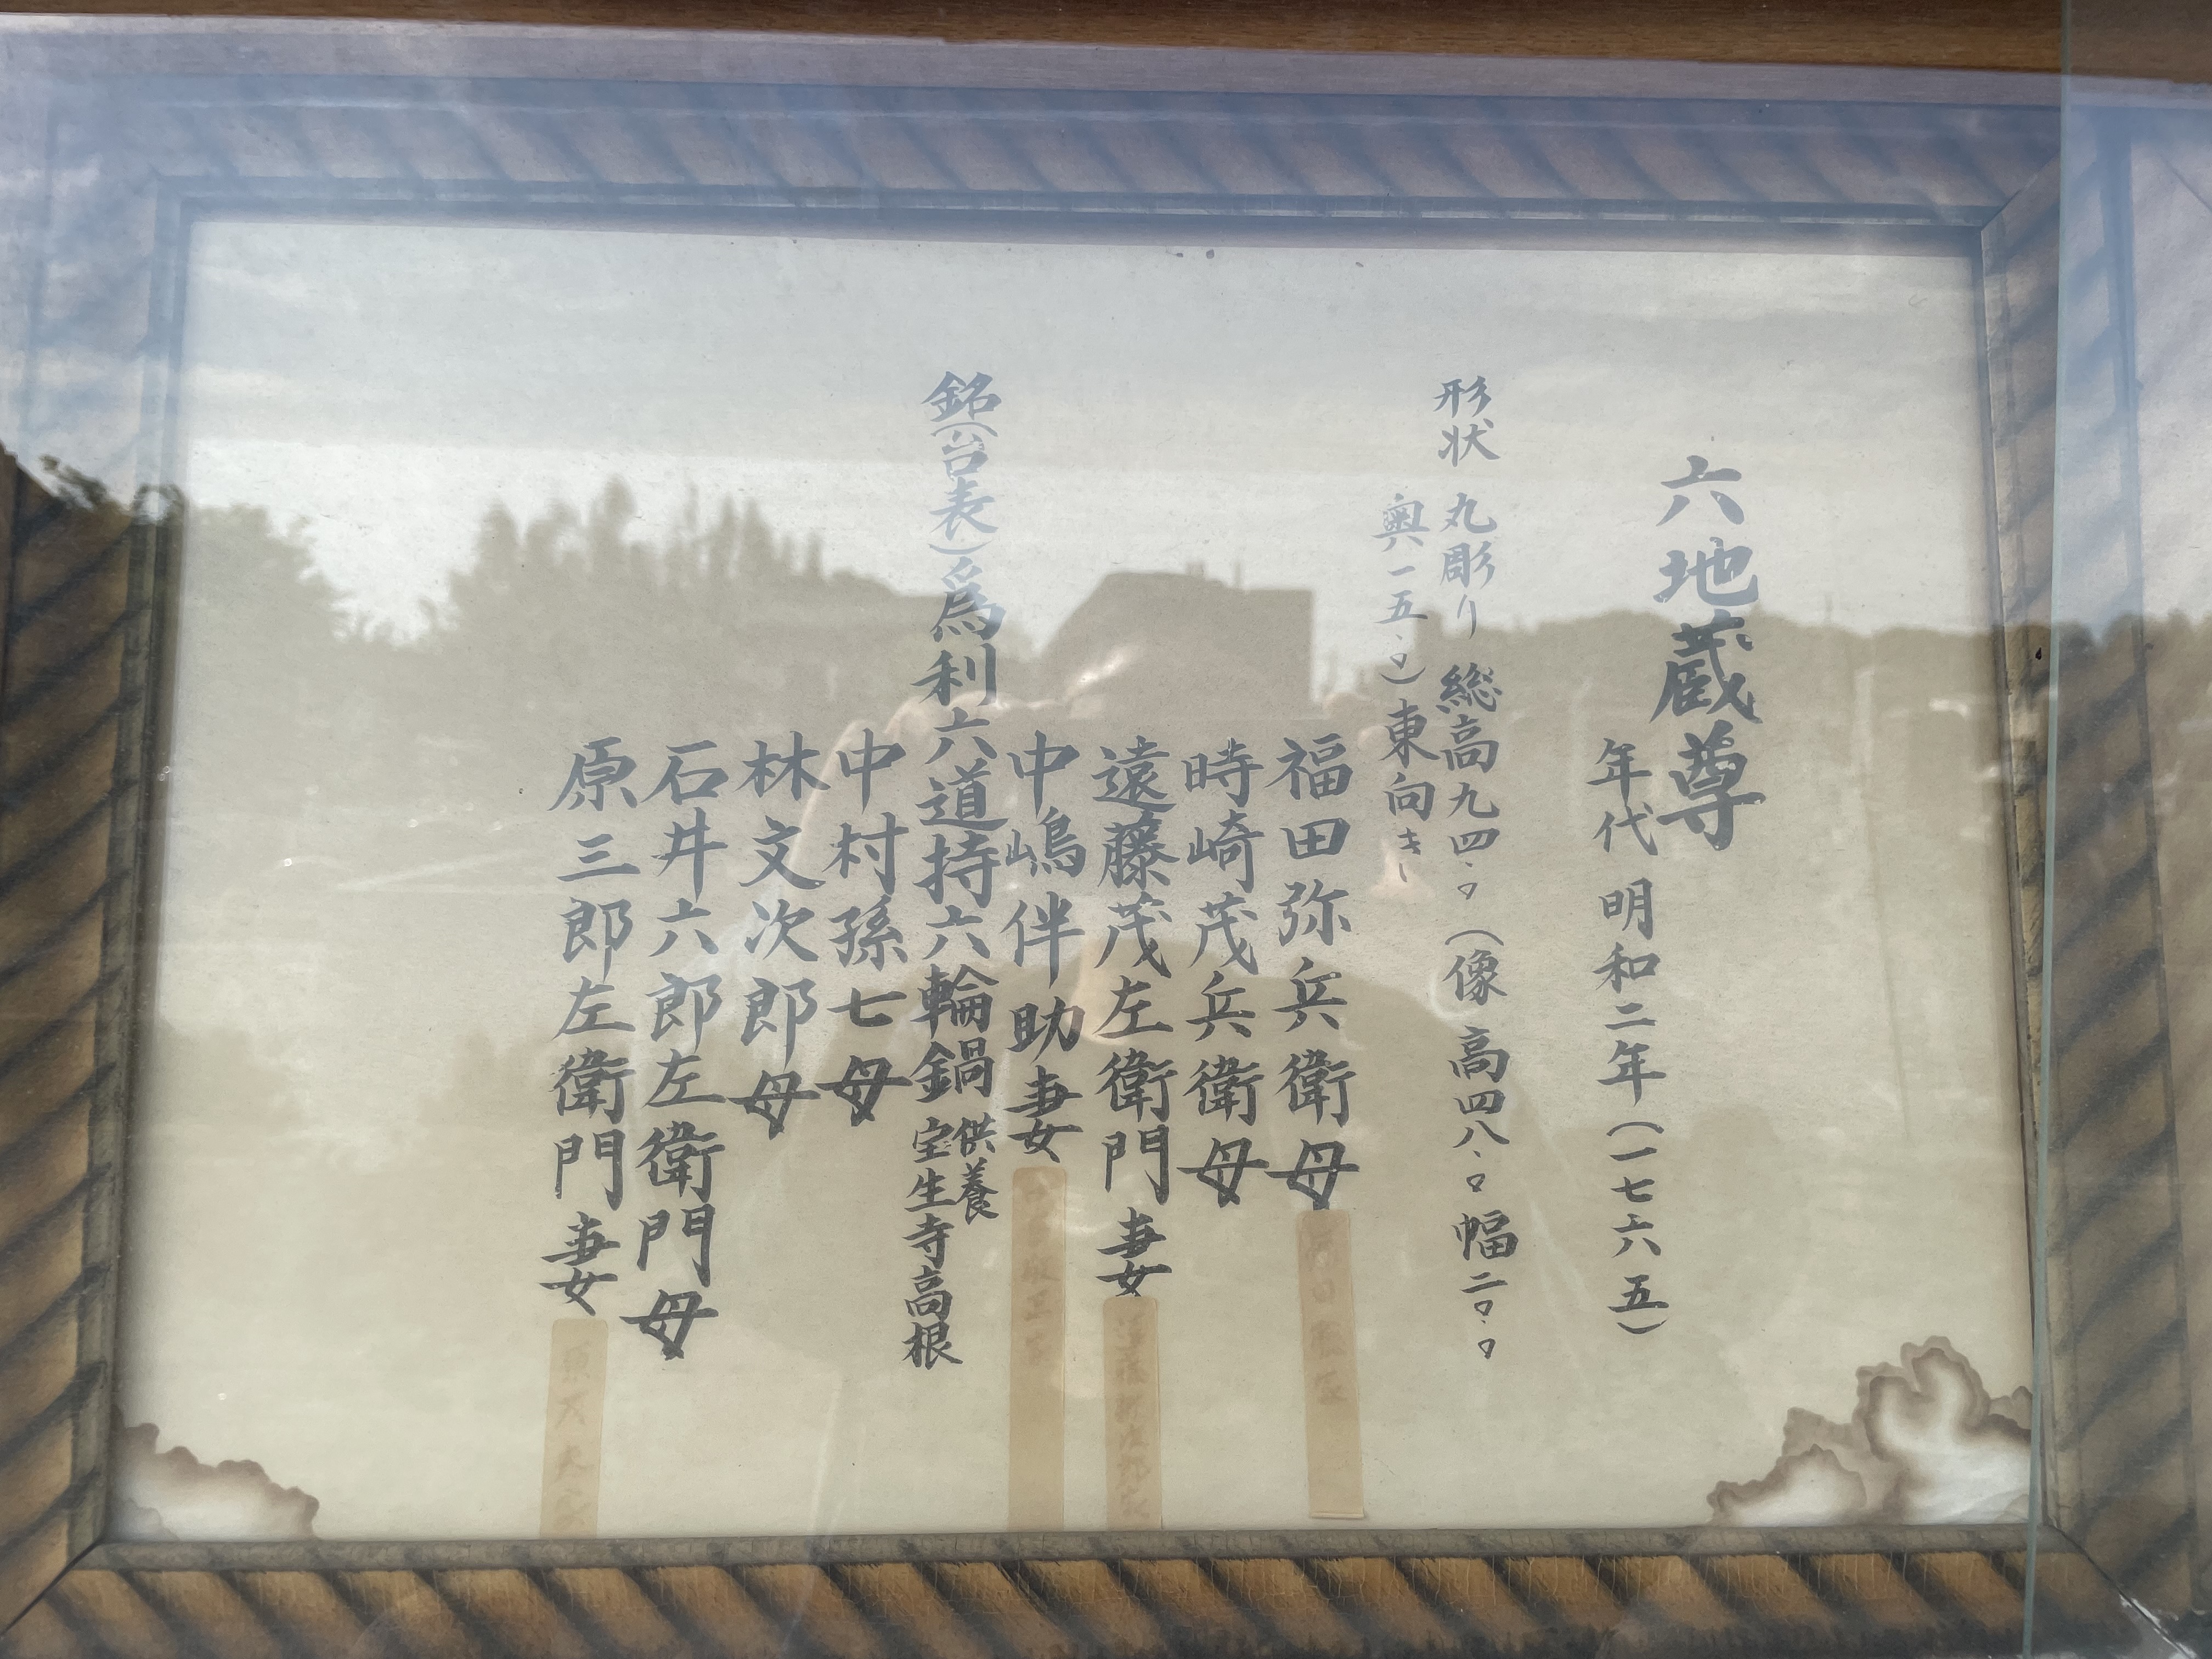 六地蔵尊
年代 明和二年(一七六五)
形状 丸彫り 総高九四.〇(像 高四八.〇 幅二〇.〇
奥一五.〇)東向き
福田弥兵衛母
時崎茂兵衛母
遠藤茂左衛門妻
中嶋伴助妻
銘(台表)爲利六道持六輪鍋 供養
宝生寺高根
中村孫七母
林文次郎母
石井六郎左衛門母
原三郎左衛門妻